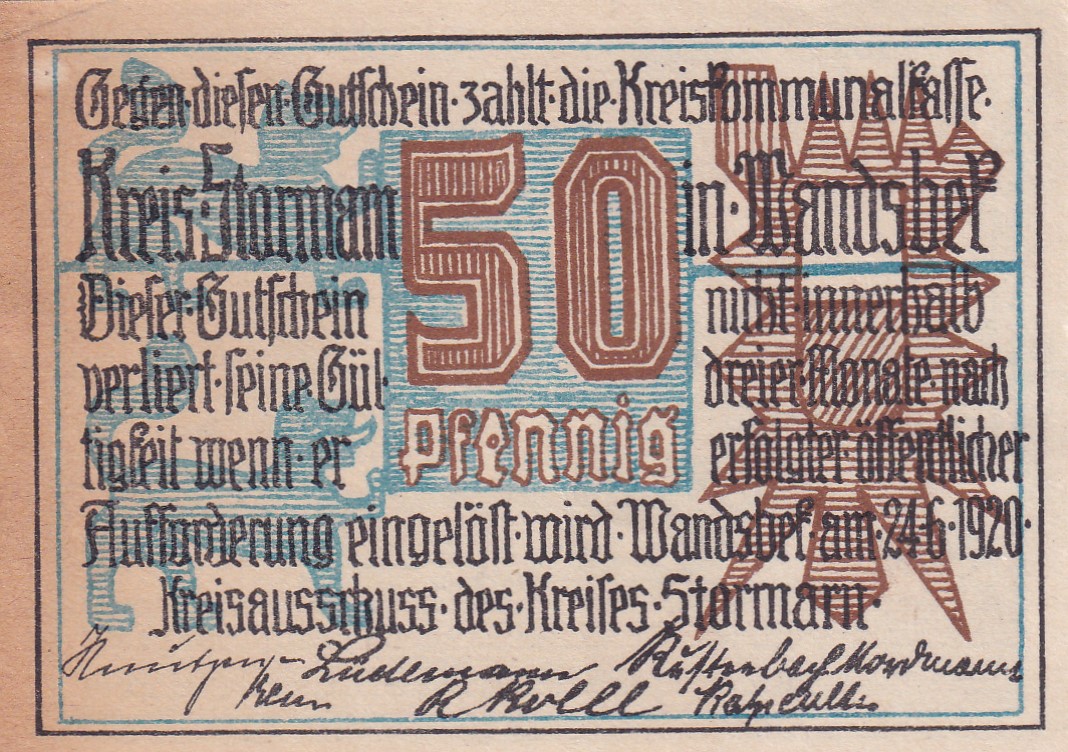 Gegen·diesen·Gutschein·zahlt·die·Kreiskommunalkasse·
Kreis·Stormarn 50 in·Wandsbek
Dieser·Gutschein nicht·innerhalb
verliert·seine·Gül· dreier·Monate·nach
tigkeit wenn·er pfennig erfolgter·öffentlicher
Aufforderung eingelöst·wird·Wandsbek·am·24·6·1920·
Kreisausschuss·des·Kreises·Stormarn·
Lüdemann